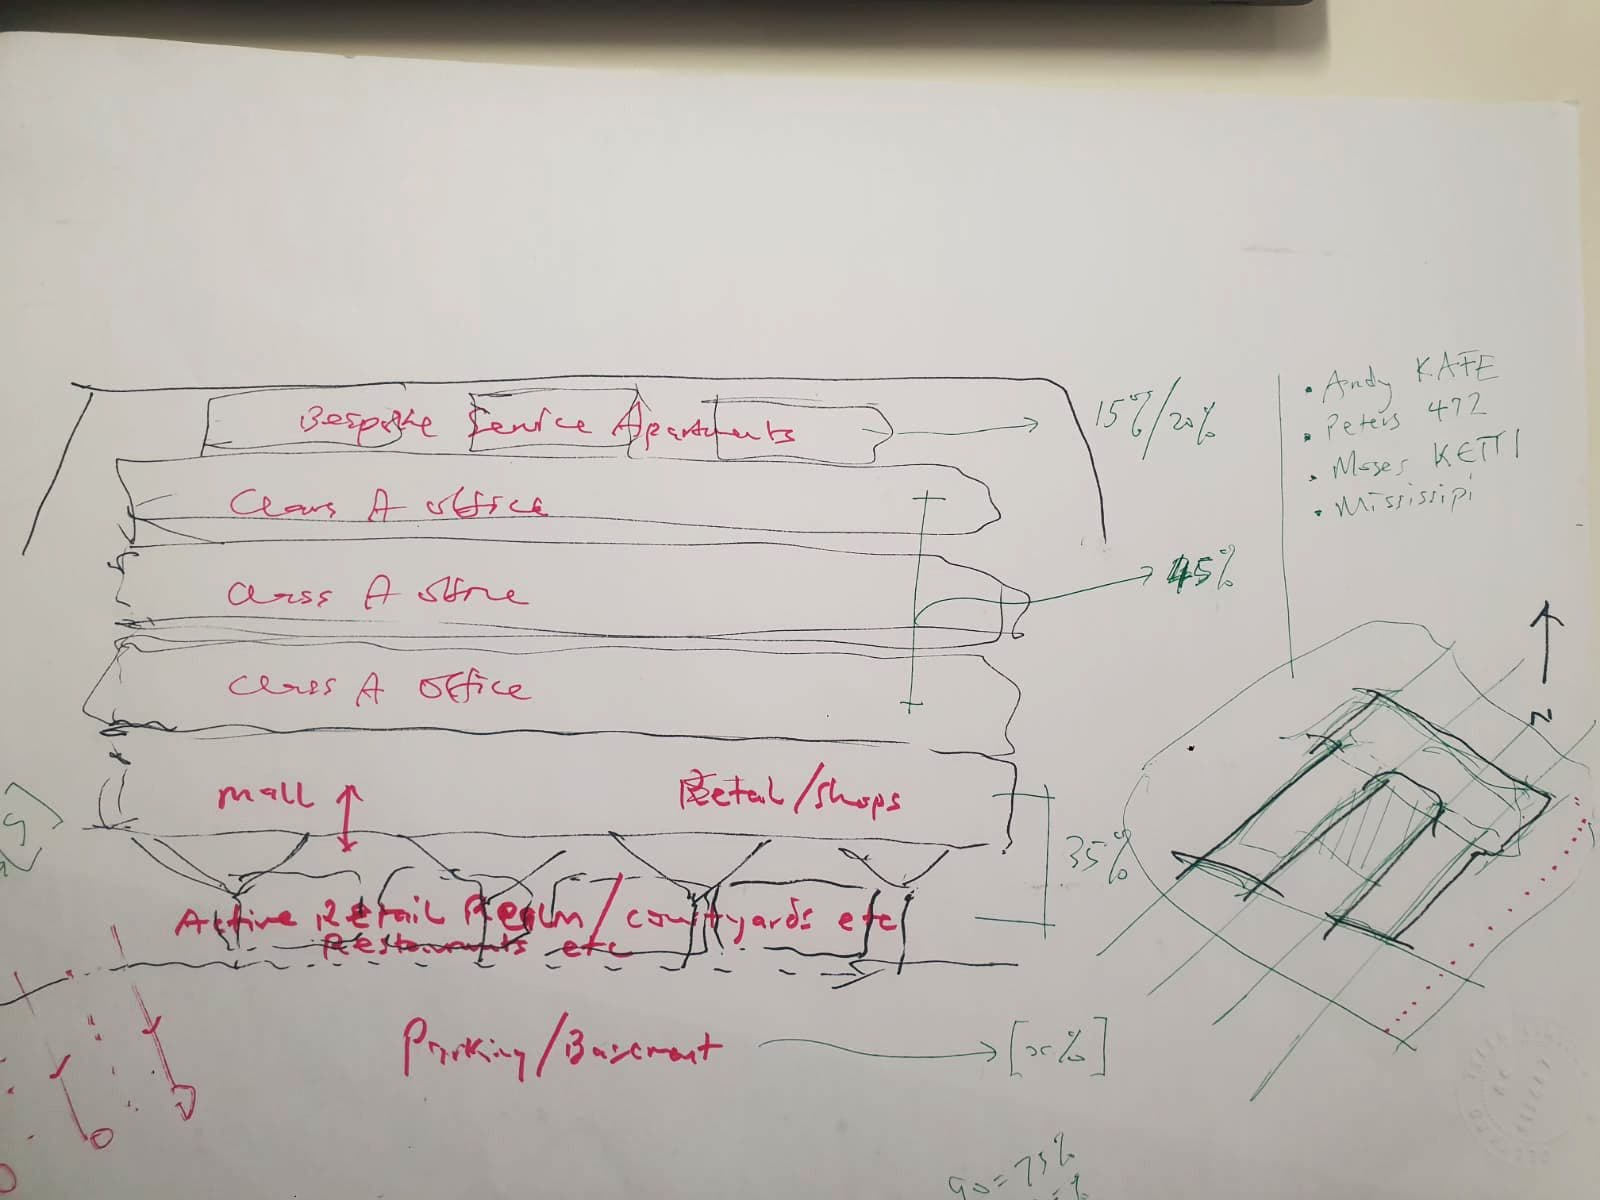 Bespoke Service Apartments
15%/20%
Class A office
Class A office
45%
Class A office
mall
Retail/shops
35%
Active Retail Realm/courtyards etc
Restaurants etc
Parking/Basement
%]
• Andy KAFE
• Peters 472
• Moses KETTI
• Mississipi
N
= 75%